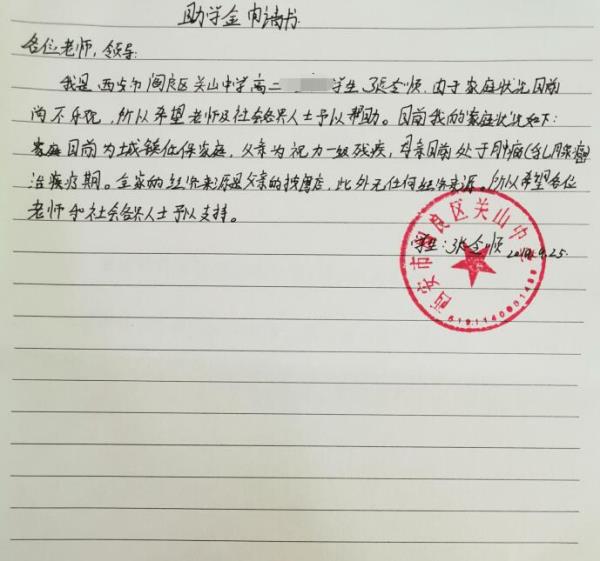 助学金申请书
各位老师,领导:
我是西安市阎良区关山中学高二 学生张金顺,由于家庭状况目前
尚不乐观,所以希望老师及社会各界人士予以帮助。目前我的家庭状况如下:
家庭目前为城镇低保家庭,父亲为视力一级残疾,母亲目前处于肿瘤(乳腺癌)
治疗期。全家的经济来源是父亲的按摩店,此外无任何经济来源。所以希望各位
老师和社会各界人士予以支持。
学生:张金顺 9.25.
西安市阎良区关山中学